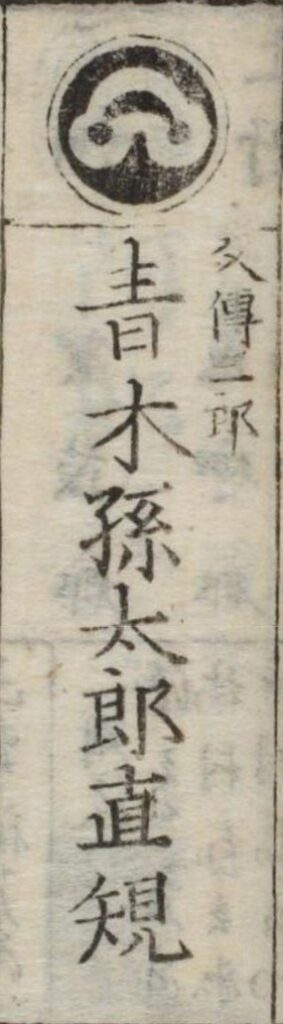 父傳三郎
青木孫太郎直規